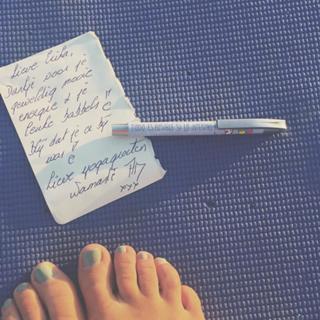 Lieve
Dankje voor je
geweldig mooie
energie & je
leuke babbels !!
Blij dat je er bij
was !
Lieve yogagroeten
xxx